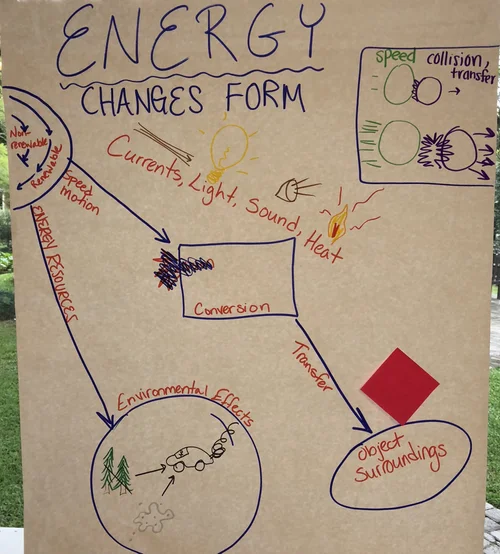 ENERGY
CHANGES FORM
speed
collision,
transfer
Non-
renewable
Renewable
Speed
motion
Currents, Light, Sound, Heat
ENERGY RESOURCES
Conversion
Transfer
Environmental Effects
object
surroundings